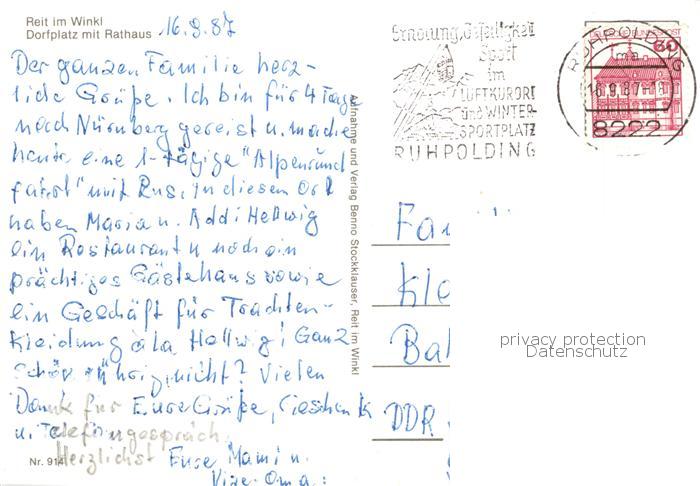 Reit im Winkl
Dorfplatz mit Rathaus 16.9.87
Der ganzen Familie herz-
liche Grüße. Ich bin für 4 Tage
nach Nürnberg gereist u. mache
heute eine 1-tägige "Alpenrund
fahrt" mit Bus, in diesen Ort
haben Maria u. Addi Hellwig
ein Restaurant u noch ein
prächtiges Gästehaus sowie
ein Geschäft für Trachten-
kleidung à la Hellwig! Ganz
schön rührig, nicht? Vielen
Dank für Eure Grüße, Geschenk
u. Telefongespräch.
Herzlichst Eure Mami u.
Oma
Nr. 914
Aufnahme und Verlag Benno Stockklauser, Reit im Winkl
Erholung, Geselligkeit
Sport
im
LUFTKURORT
und WINTER-
SPORTPLATZ
RUHPOLDING
RUHPOLDING
ma
16.9.87-18
8222
60
DEUTSCHE BUNDESPOST
Fa
Kl
Ba
DDR
privacy protection
Datenschutz